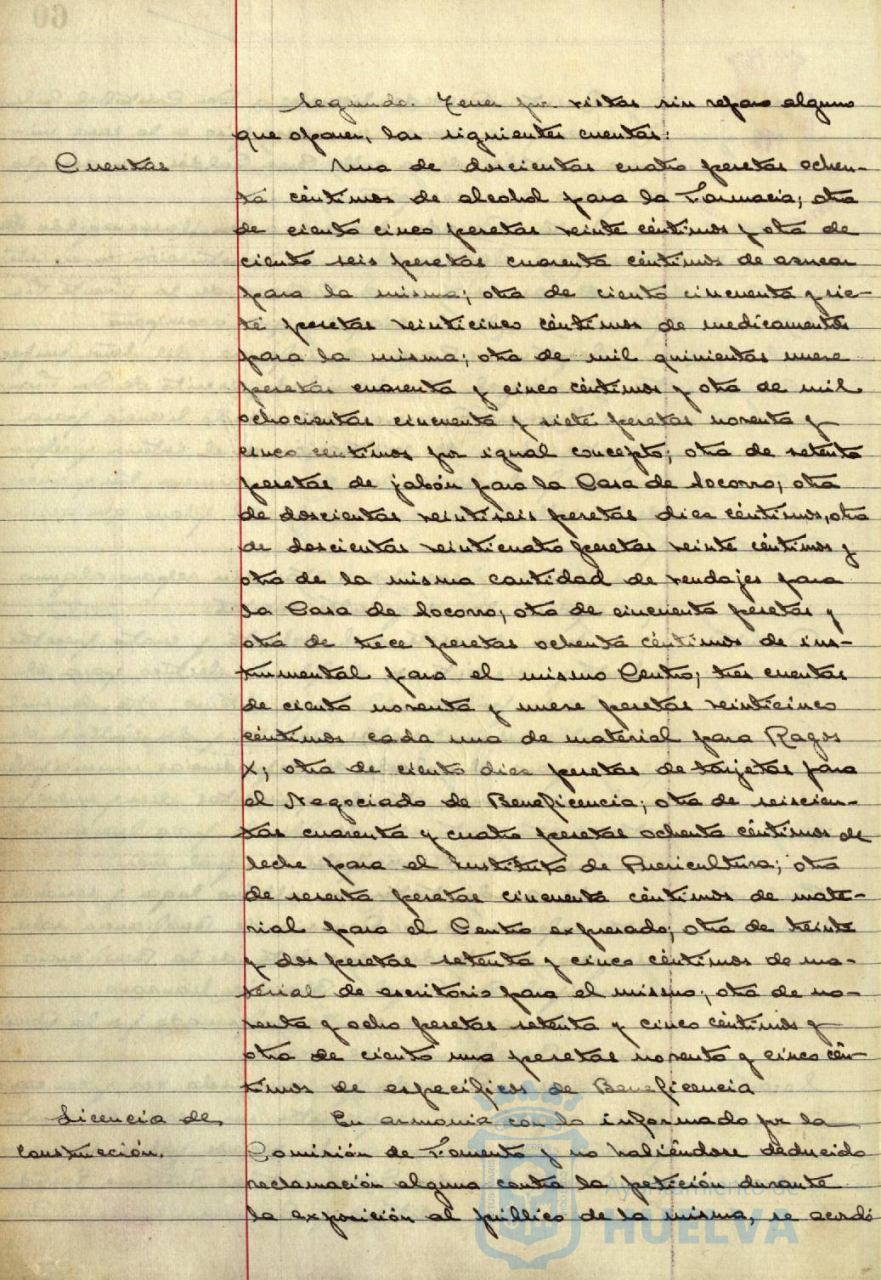 60
Segundo. Tener por vistas sin reparo alguno
que oponer, las siguientes cuentas:
Cuentas
Una de doscientas cuatro pesetas ochen-
ta céntimos de alcohol para la Farmacia; otra
de ciento cinco pesetas veinte céntimos y otra de
ciento seis pesetas cuarenta céntimos de azucar
para la misma; otra de ciento cincuenta y sie-
te pesetas veinticinco céntimos de medicamentos
para la misma; otra de mil quinientas nueve
pesetas cuarenta y cinco céntimos y otra de mil
ochocientas cincuenta y siete pesetas noventa y
cinco céntimos por igual concepto; otra de setenta
pesetas de jabón para la Casa de Socorro; otra
de doscientas veintiseis pesetas diez céntimos, otra
de doscientas veinticuatro pesetas veinte céntimos y
otra de la misma cantidad de vendajes para
la Casa de Socorro; otra de cincuenta pesetas y
otra de trece pesetas ochenta céntimos de ins-
trumental para el mismo Centro; tres cuentas
de ciento noventa y nueve pesetas veinticinco
céntimos cada una de material para Rayos
X; otra de ciento diez pesetas de tarjetas para
el Negociado de Beneficencia; otra de seiscien-
tas cuarenta y cuatro pesetas ochenta céntimos de
leche para el Instituto de Puericultura; otra
de sesenta pesetas cincuenta céntimos de mate-
rial para el Centro expresado; otra de treinta
y dos pesetas setenta y cinco céntimos de ma-
terial de escritorio para el mismo; otra de no-
venta y ocho pesetas setenta y cinco céntimos y
otra de ciento una pesetas noventa y cinco cén-
timos de específicos de Beneficencia
Licencia de
construcción.
En armonia con lo informado por la
Comisión de Fomento y no habiéndose deducido
reclamación alguna contra la petición durante
la exposición al público de la misma, se acordó
Ayuntamiento de
HUELVA